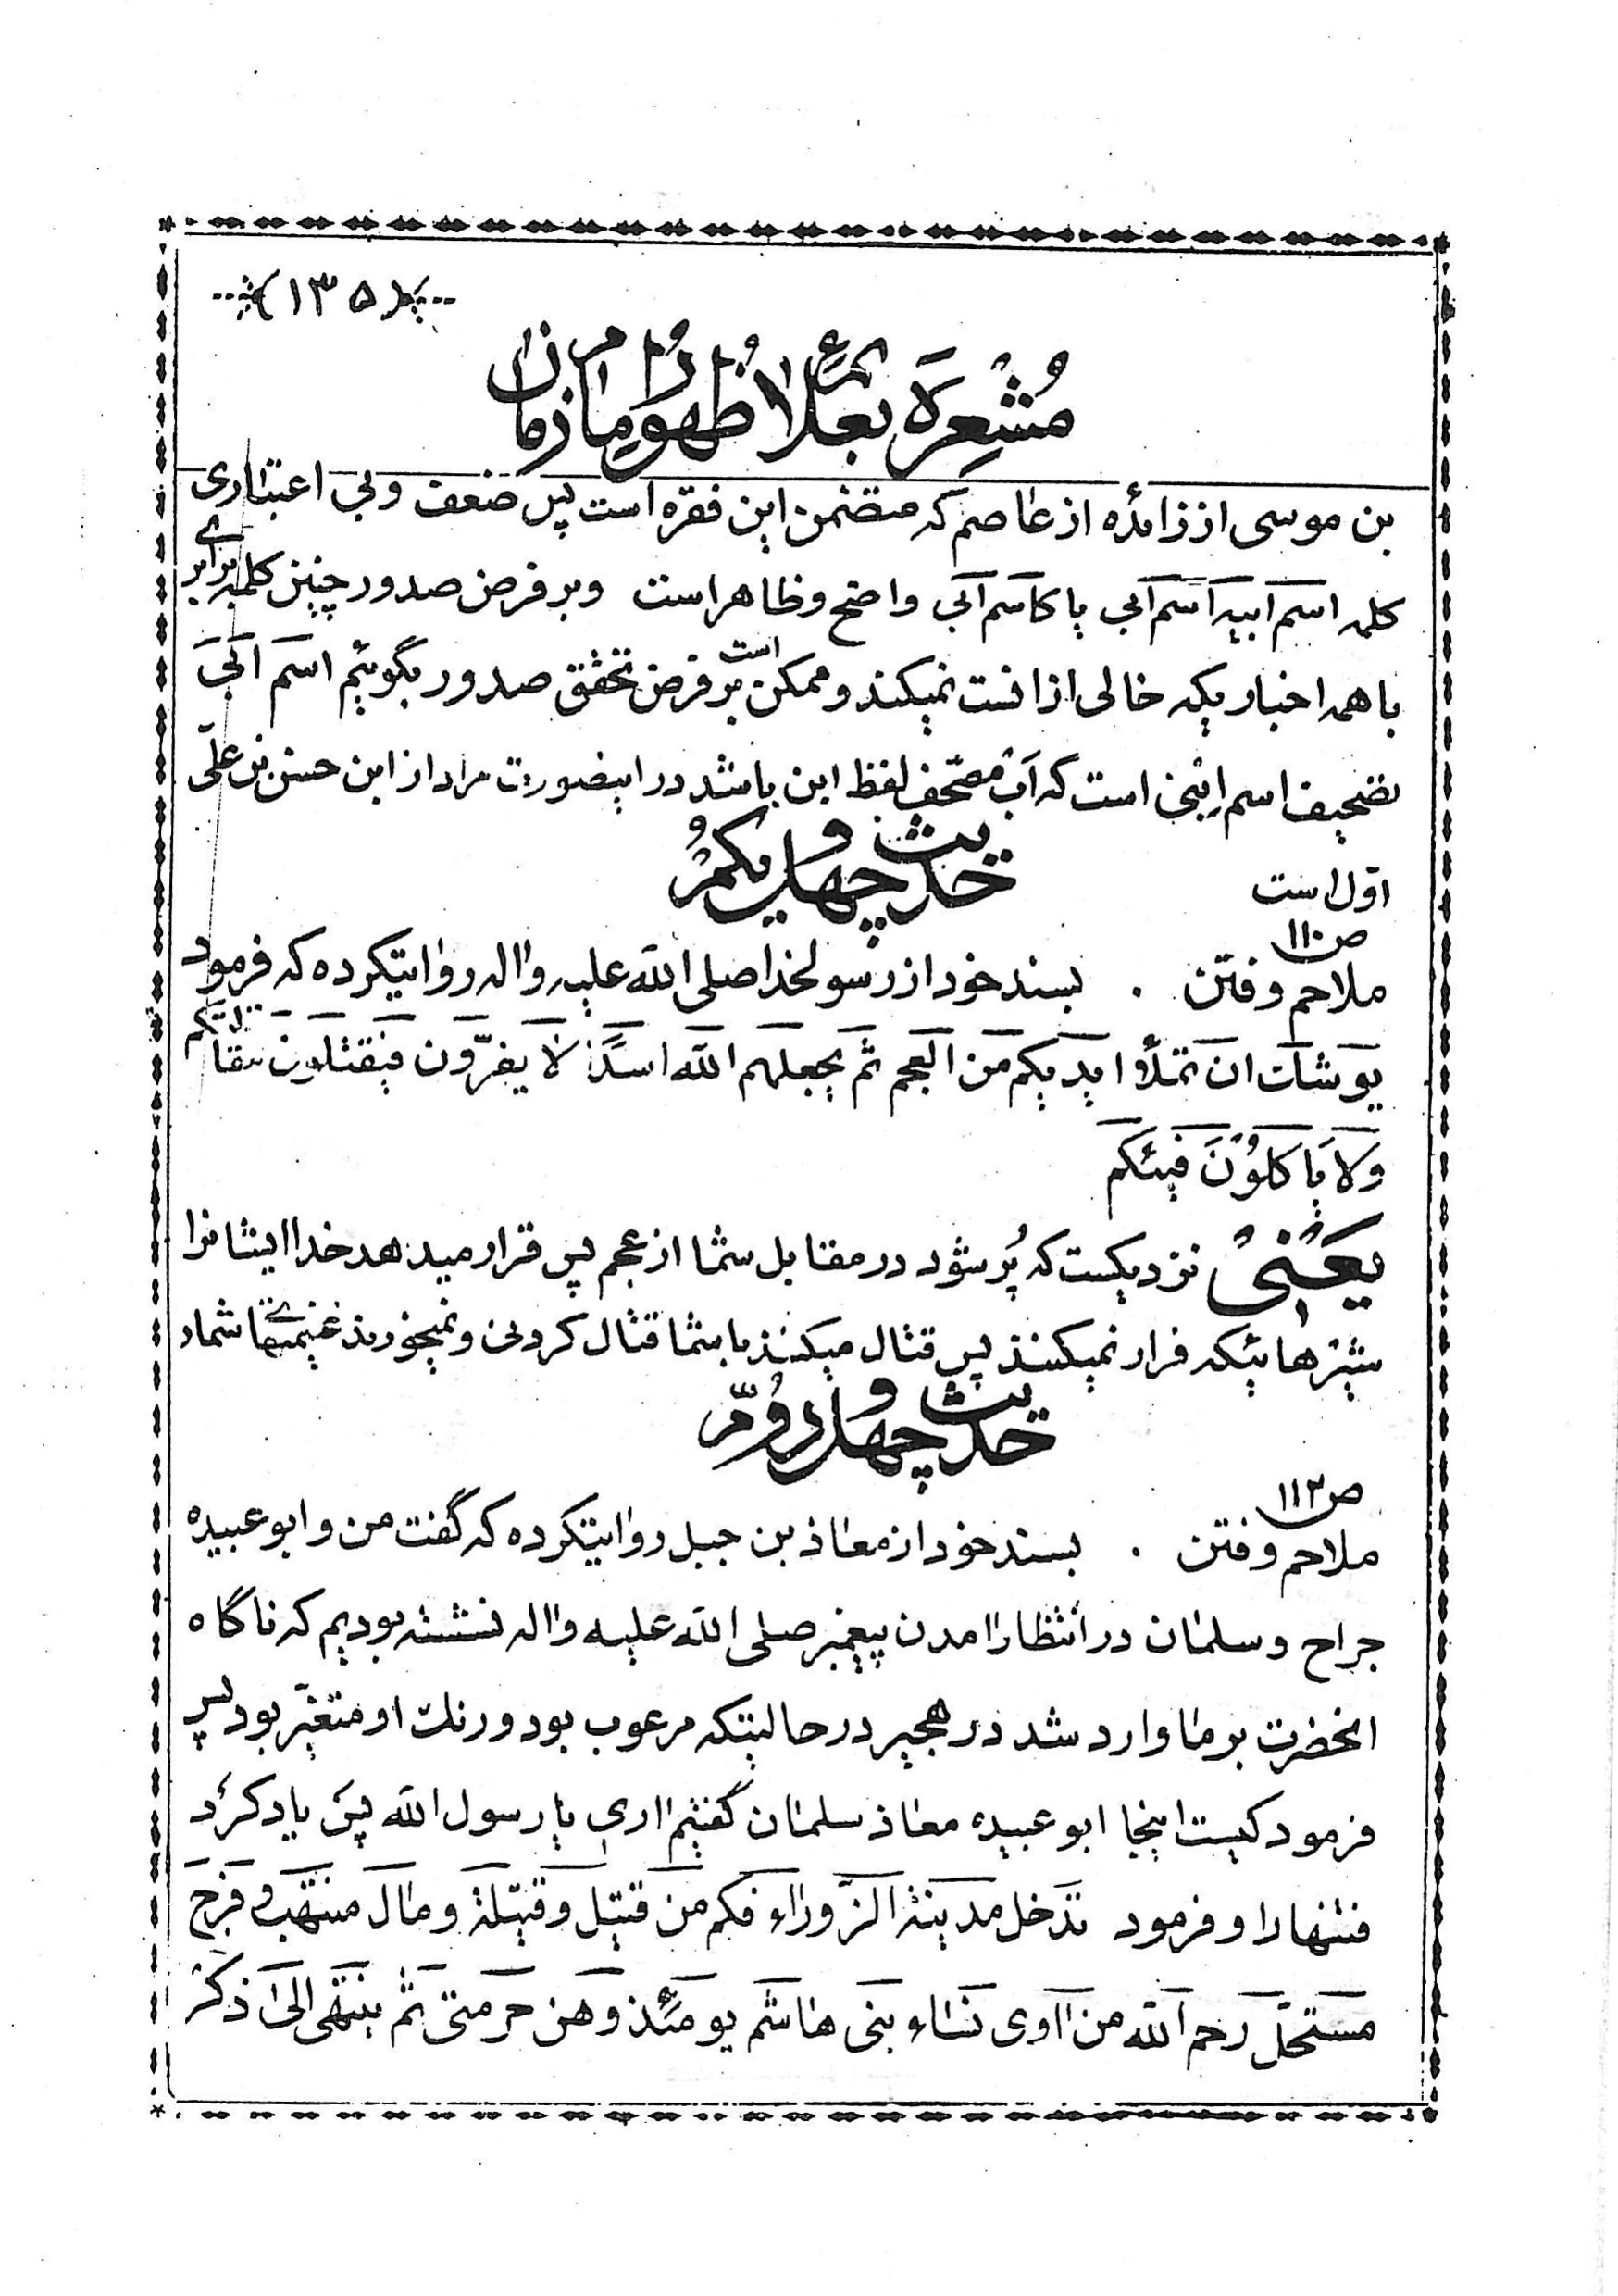 ﴿۱۳۵﴾
مُشْعِرَه بعلائم ظهور امام زمان
بن موسی از زائده از عاصم که متضمن این فقره است پس ضعف و بی اعتباری
کلمه اسم ابیه اسم ابی یا کاسم ابی واضح و ظاهر است و بر فرض صدور چنین کلمه برابری
با همه اخباریکه خالی از انست نمیکند و ممکن است بر فرض تحقق صدور بگوئیم اسم ابی
تصحیف اسم ابنی است که اب مصحّف لفظ ابن باشد در اینصورت مراد از ابن حسن بن علی
اوّل است
حدیث چهل و یکم
ص۱۱۰
ملاحم و فتن . بسند خود از رسولخدا صلی الله علیه و اله روایتکرده که فرمود
یوشک ان تملأ ایدیکم من العجم ثم یجعلهم الله اسدًا لا یفرّون فیقتلون مقاتلتکم
وَلا یاکلوُنَ فیئکم
یَعْنی نزدیکست که پُر شود در مقابل شما از عجم پس قرار میدهد خدا ایشانرا
شیرهائیکه فرار نمیکنند پس قتال میکنند با شما قتال کردنی و نمیخورند غنیمتهای شمارا
حدیث چهل و دوم
ص۱۱۳
ملاحم و فتن . بسند خود از معاذ بن جبل روایتکرده که گفت من و ابو عبیده
جراح و سلمان در انتظار امدن پیغمبر صلی الله علیه و اله نشسته بودیم که ناگاه
انحضرت بر ما وارد شد در هجیر در حالیتکه مرعوب بود و رنک او متغیّر بود پس
فرمود کیست اینجا ابو عبیده معاذ سلمان گفتیم اری یا رسول الله پس یاد کرد
فتنها را و فرمود تدخل مدینة الزّوراء فکم من قتیل و قتیلة و مال منتهب و فرج
مستحلّ رحم الله من اآوی نساء بنی هاشم یومئذ و هن حرمتی ثم ینتهی الی ذکر